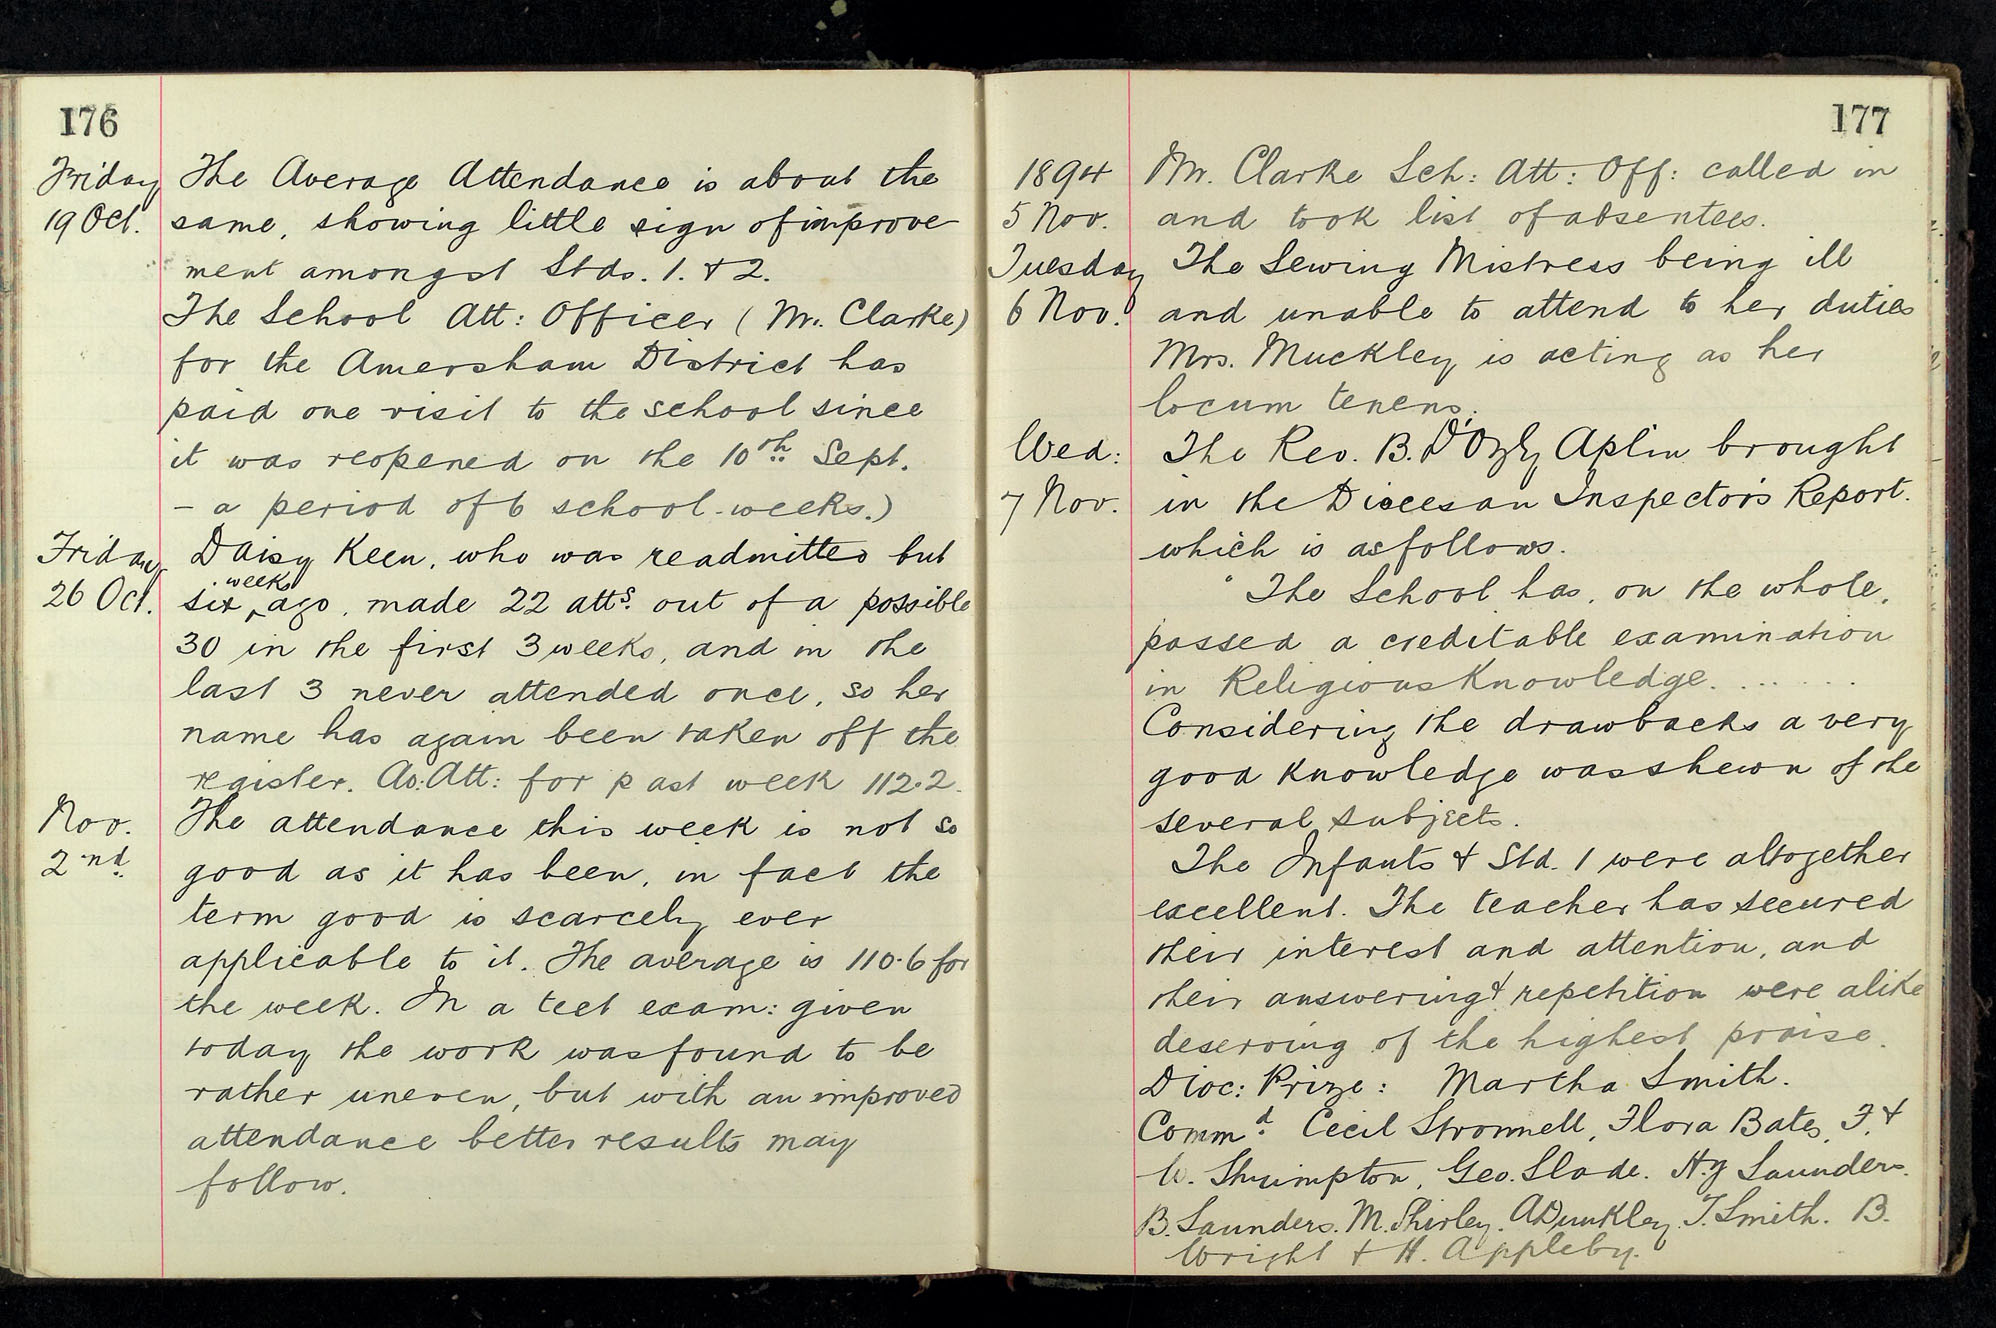 176
Friday The Average Attendance is about the
19 Oct. same, showing little sign of improve
ment amongst Stds. 1. & 2.
The School Att: Officer (Mr. Clarke)
for the Amersham District has
paid one visit to the school since
it was reopened on the 10th Sept.
- a period of 6 school-weeks.)
Friday Daisy Keen, who was readmitted but
26 Oct. six weeks ago, made 22 atts. out of a possible
30 in the first 3 weeks, and in the
last 3 never attended once, so her
name has again been taken off the
register. Av: Att: for past week 112.2.
Nov. The attendance this week is not so
2nd. good as it has been, in fact the
term good is scarcely ever
applicable to it. The average is 110.6 for
the week. In a test exam: given
today the work was found to be
rather uneven, but with an improved
attendance better results may
follow.
177
1894 Mr. Clarke Sch: Att: Off: called in
5 Nov. and took list of absentees.
Tuesday The Sewing Mistress being ill
6 Nov. and unable to attend to her duties
Mrs. Muckley is acting as her
locum tenens.
Wed: The Rev. B. D'Oyly Aplin brought
7 Nov. in the Diocesan Inspector's Report.
which is as follows.
" The School has, on the whole,
passed a creditable examination
in Religious Knowledge. ......
Considering the drawbacks a very
good knowledge was shewn of the
several subjects.
The Infants & Std. 1 were altogether
excellent. The teacher has secured
their interest and attention, and
their answering & repetition were alike
deserving of the highest praise.
Dioc: Prize: Martha Smith.
Commd. Cecil Stronnell, Flora Bates, F. &
W. Shrimpton, Geo. Slade. Hy Saunders.
B. Saunders. M. Shirley. A Dunkley. T. Smith. B.
Wright & H. Appleby.